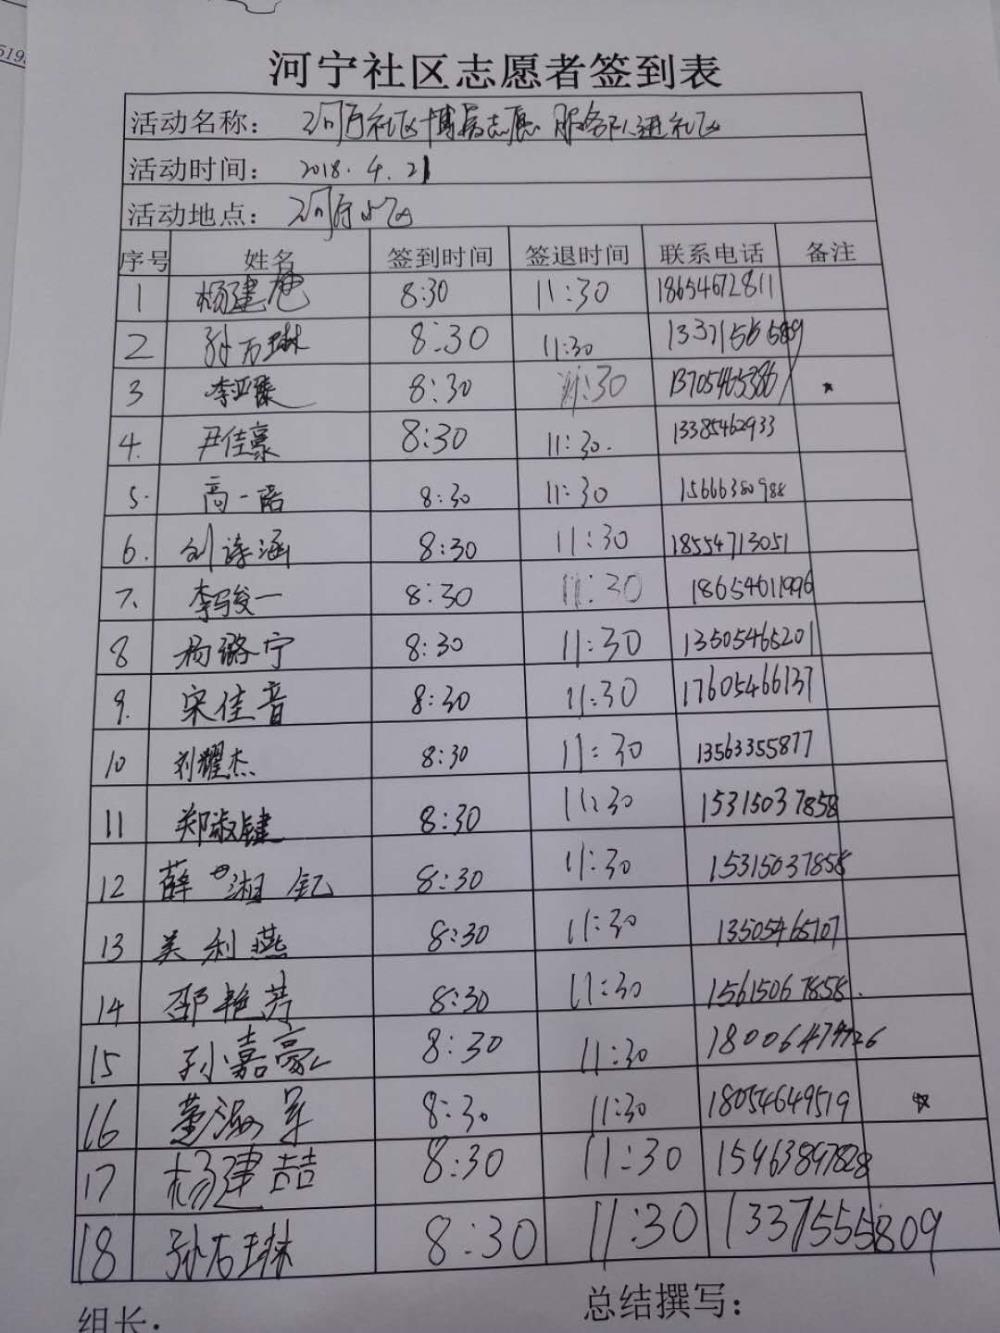 519
河宁社区志愿者签到表
活动名称: 河宁社区博爱志愿服务队进社区
活动时间: 2018.4.21
活动地点: 河宁小区
序号 姓名 签到时间 签退时间 联系电话 备注
1 杨建 8:30 11:30 18654672811
2 孙右琳 8:30 11:30
3 李亚臻 8:30 11:30 13705465386 ★
4. 尹佳豪 8:30 11:30. 13385462933
5. 高一语 8:30 11:30 15666380988
6. 刘诗涵 8:30 11:30 18554713051
7. 李骏一 8:30 11:30 18654611996
8 杨璐宁 8:30 11:30 13505465201
9. 宋佳音 8:30 11:30 17605466137
10 刘耀杰 8:30 11:30 13563355877
11 郑淑键 8:30 11:30 15315037858
12 薛湘钇 8:30 11:30 15315037858
13 美利燕 8:30 11:30 13505465707
14 邵艳芳 8:30 11:30 15615067858.
15 孙嘉豪 8:30 11:30
16 黄海军 8:30 11:30 18054649519 ☆
17 杨建喆 8:30 11:30 15963897828
18 孙右琳 8:30 11:30 1337555809
组长: 总结撰写: